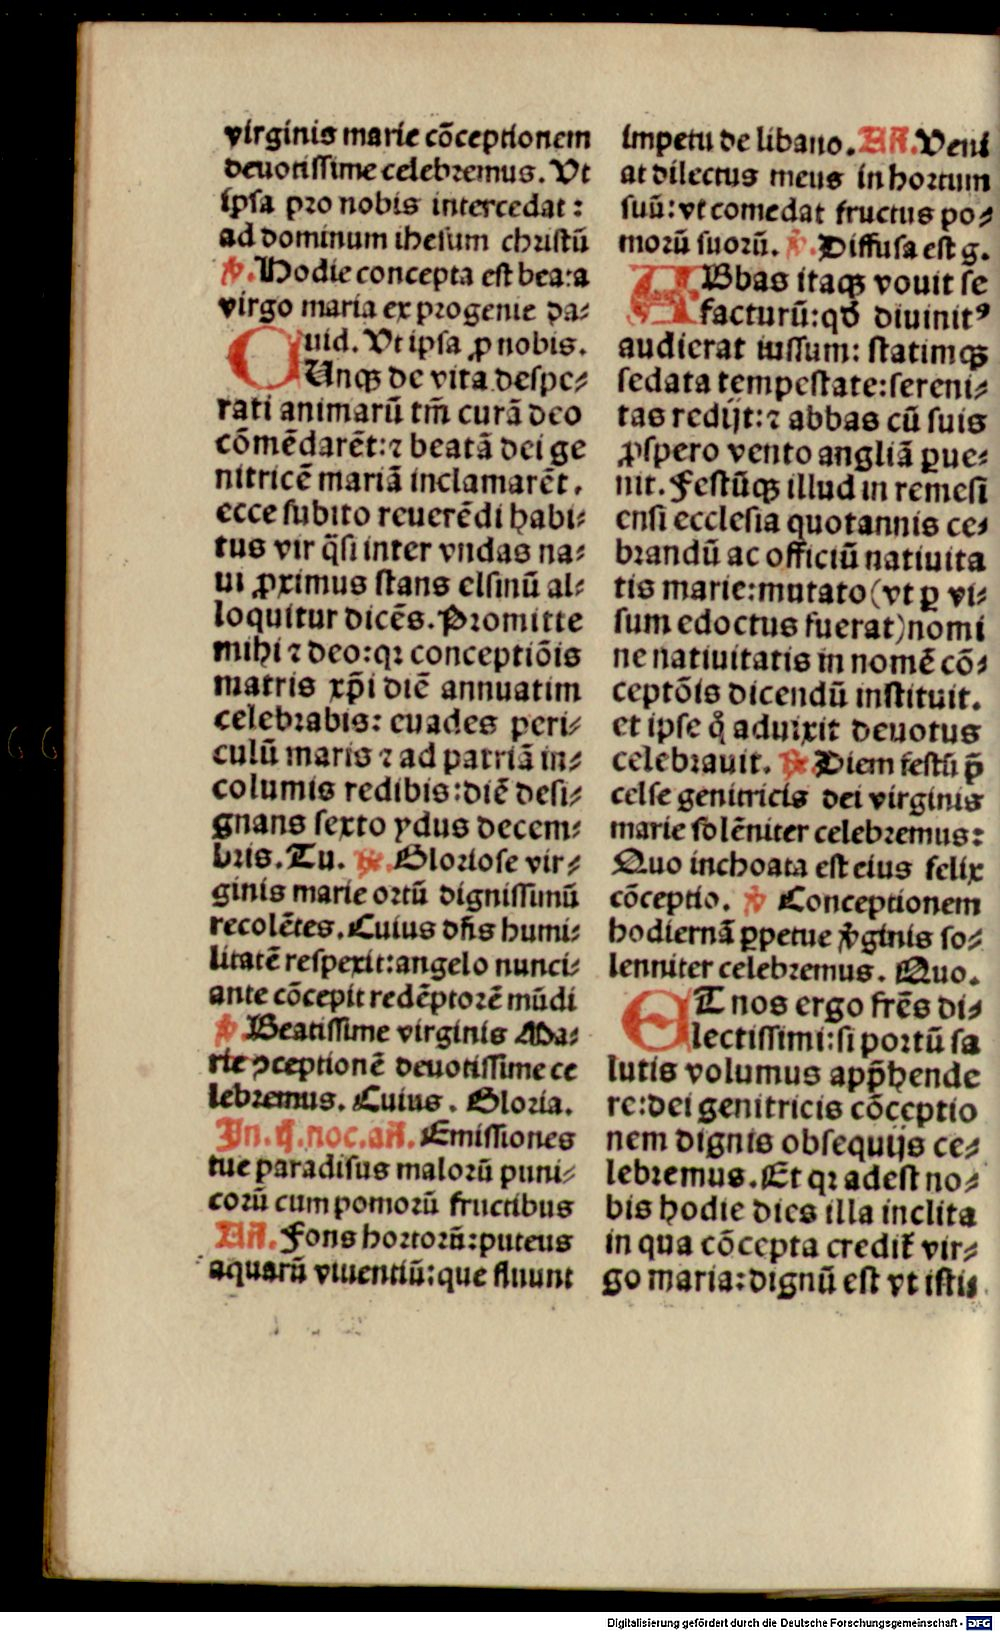 virginis marie cõceptionem
deuotissime celebremus. Vt
ipsa pro nobis intercedat:
ad dominum ihesum christũ
℣. Hodie concepta est beata
virgo maria ex progenie da⸗
uid. Vt ipsa ꝓ nobis.
CUnqꝫ de vita despe⸗
rati animarũ tm̃ curã deo
cõmẽdarẽt: ⁊ beatã dei ge
nitricẽ mariã inclamarẽt.
ecce subito reuerẽdi habi⸗
tus vir q̃si inter vndas na⸗
ui ꝓximus stans elsinũ al⸗
loquitur dicẽs. Promitte
mihi ⁊ deo: qꝛ conceptiõis
matris xp̃i diẽ annuatim
celebrabis: euades peri⸗
culũ maris ⁊ ad patriã in⸗
columis redibis: diẽ desi⸗
gnans sexto ydus decem⸗
bris. Tu. ℟. Gloriose vir⸗
ginis marie ortũ dignissimũ
recolẽtes. Cuius dñs humi⸗
litatẽ respexit: angelo nunci⸗
ante cõcepit redẽptorẽ mũdi
℣. Beatissime virginis Ma⸗
rie ꝯceptionẽ deuotissime ce
lebremus. Cuius. Gloria.
In. ij. noc. añ. Emissiones
tue paradisus malorũ puni⸗
corũ cum pomorũ fructibus
Añ. Fons hortorũ: puteus
aquarũ viuentiũ: que fluunt
impetu de libano. Añ. Veni
at dilectus meus in hortum
suũ: vt comedat fructus po⸗
morũ suorũ. ℣. Diffusa est g.
ABbas itaqꝫ vouit se
facturũ: qđ diuinitꝰ
audierat iussum: statimqꝫ
sedata tempestate: sereni⸗
tas redijt: ⁊ abbas cũ suis
ꝓspero vento angliã ꝑue⸗
nit. Festũqꝫ illud in remesi
ensi ecclesia quotannis ce⸗
brandũ ac officiũ natiuita
tis marie: mutato (vt ꝑ vi⸗
sum edoctus fuerat) nomi
ne natiuitatis in nomẽ cõ⸗
ceptõis dicendũ instituit.
et ipse qͣ́ aduixit deuotus
celebrauit. ℟. Diem festũ p̃
celse genitricis dei virginis
marie solẽniter celebremus:
Quo inchoata est eius felix
cõceptio. ℣ Conceptionem
hodiernã ꝑpetue v̓ginis so⸗
lenniter celebremus. Quo.
ET nos ergo frẽs di⸗
lectissimi: si portũ sa
lutis volumus app̃hende
re: dei genitricis cõceptio
nem dignis obsequijs ce⸗
lebremus. Et qꝛ adest no⸗
bis hodie dies illa inclita
in qua cõcepta credit̃ vir⸗
go maria: dignũ est vt isti⸗
Digitalisierung gefördert durch die Deutsche Forschungsgemeinschaft - DFG